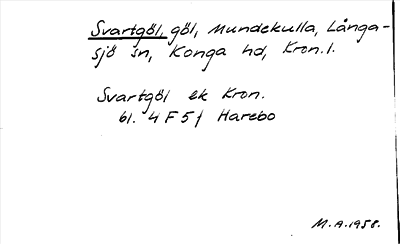 Svartgöl, göl, Mundekulla, Långa-
sjö sn, Konga hd, Kron.l.
Svartgöl ek Kron.
bl. 4 F 5 f Harebo
M.A. 1958.